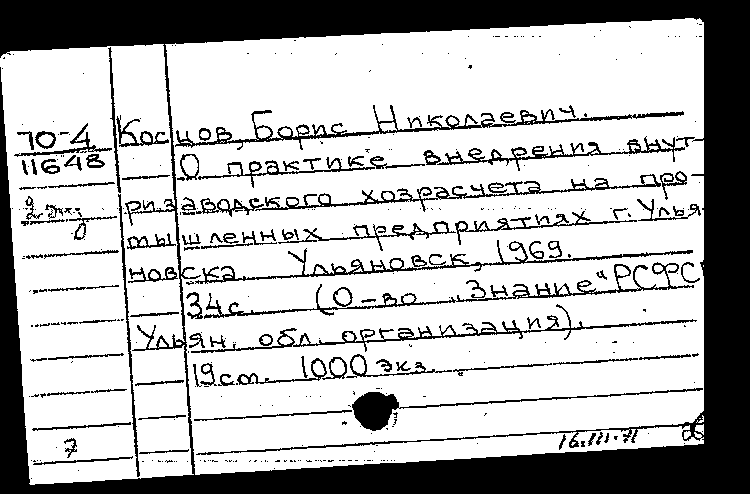 70-4
11648
2 экз
0
Косцов, Борис Николаевич.
О практике внедрения внут-
ризаводского хозрасчета на про-
мышленных предприятиях г. Улья-
новска. Ульяновск, 1969.
34с. (О-во „Знание“ РСФСР
Ульян. обл. организация).
19см. 1000 экз.
7
16.III.71